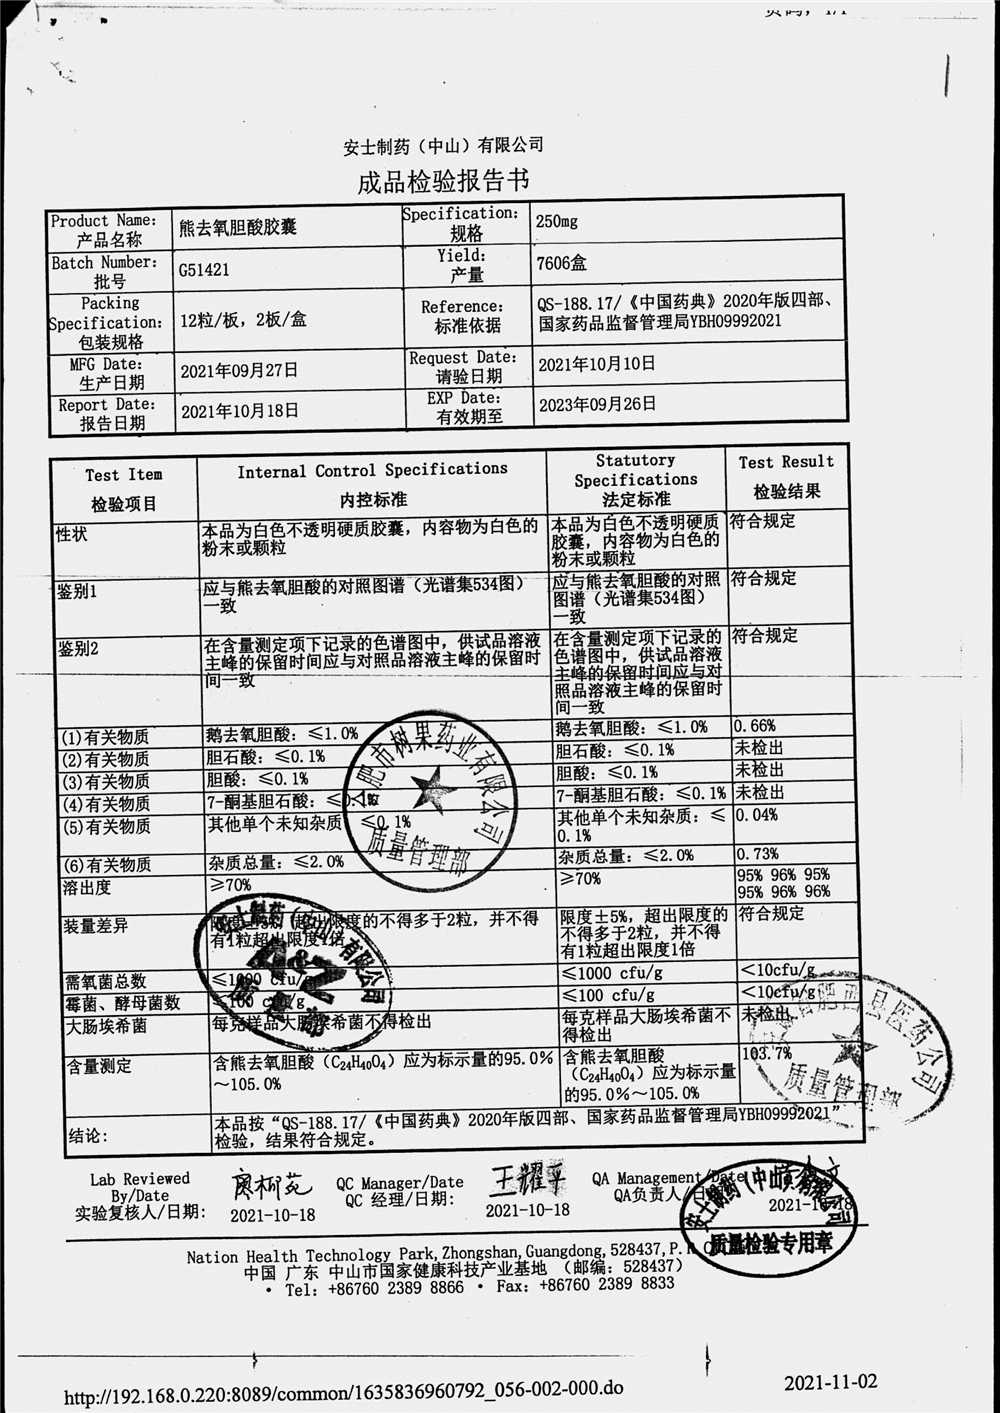 安士制药（中山）有限公司
成品检验报告书
Product Name: 产品名称 熊去氧胆酸胶囊 Specification: 规格 250mg
Batch Number: 批号 G51421 Yield: 产量 7606盒
Packing Specification: 包装规格 12粒/板，2板/盒 Reference: 标准依据 QS-188.17/《中国药典》2020年版四部、国家药品监督管理局YBH09992021
MFG Date: 生产日期 2021年09月27日 Request Date: 请验日期 2021年10月10日
Report Date: 报告日期 2021年10月18日 EXP Date: 有效期至 2023年09月26日
Test Item 检验项目 Internal Control Specifications 内控标准 Statutory Specifications 法定标准 Test Result 检验结果
性状 本品为白色不透明硬质胶囊，内容物为白色的粉末或颗粒 本品为白色不透明硬质胶囊，内容物为白色的粉末或颗粒 符合规定
鉴别1 应与熊去氧胆酸的对照图谱（光谱集534图）一致 应与熊去氧胆酸的对照图谱（光谱集534图）一致 符合规定
鉴别2 在含量测定项下记录的色谱图中，供试品溶液主峰的保留时间应与对照品溶液主峰的保留时间一致 在含量测定项下记录的色谱图中，供试品溶液主峰的保留时间应与对照品溶液主峰的保留时间一致 符合规定
(1)有关物质 鹅去氧胆酸：≤1.0% 鹅去氧胆酸：≤1.0% 0.66%
(2)有关物质 胆石酸：≤0.1% 胆石酸：≤0.1% 未检出
(3)有关物质 胆酸：≤0.1% 胆酸：≤0.1% 未检出
(4)有关物质 7-酮基胆石酸：≤0.1% 7-酮基胆石酸：≤0.1% 未检出
(5)有关物质 其他单个未知杂质：≤0.1% 其他单个未知杂质：≤0.1% 0.04%
(6)有关物质 杂质总量：≤2.0% 杂质总量：≤2.0% 0.73%
溶出度 ≥70% ≥70% 95% 96% 95% 95% 96% 96%
装量差异 限度±5%，超出限度的不得多于2粒，并不得有1粒超出限度1倍 限度±5%，超出限度的不得多于2粒，并不得有1粒超出限度1倍 符合规定
需氧菌总数 ≤1000 cfu/g ≤1000 cfu/g <10cfu/g
霉菌、酵母菌数 ≤100 cfu/g ≤100 cfu/g <10cfu/g
大肠埃希菌 每克样品大肠埃希菌不得检出 每克样品大肠埃希菌不得检出 未检出
含量测定 含熊去氧胆酸（C24H40O4）应为标示量的95.0%～105.0% 含熊去氧胆酸（C24H40O4）应为标示量的95.0%～105.0% 103.7%
结论: 本品按“QS-188.17/《中国药典》2020年版四部、国家药品监督管理局YBH09992021”检验，结果符合规定。
合肥市树果药业有限公司
质量管理部
安士制药（中山）有限公司
肥西县医药公司
质量管理部
Lab Reviewed By/Date 实验复核人/日期: 2021-10-18
QC Manager/Date QC 经理/日期: 王耀平 2021-10-18
QA Management/Date QA负责人/日期: 2021-10-18
安士制药（中山）有限公司
质量检验专用章
Nation Health Technology Park, Zhongshan, Guangdong, 528437, P.R.C
中国 广东 中山市国家健康科技产业基地 （邮编: 528437）
• Tel: +86760 2389 8866 • Fax: +86760 2389 8833
http://192.168.0.220:8089/common/1635836960792_056-002-000.do
2021-11-02